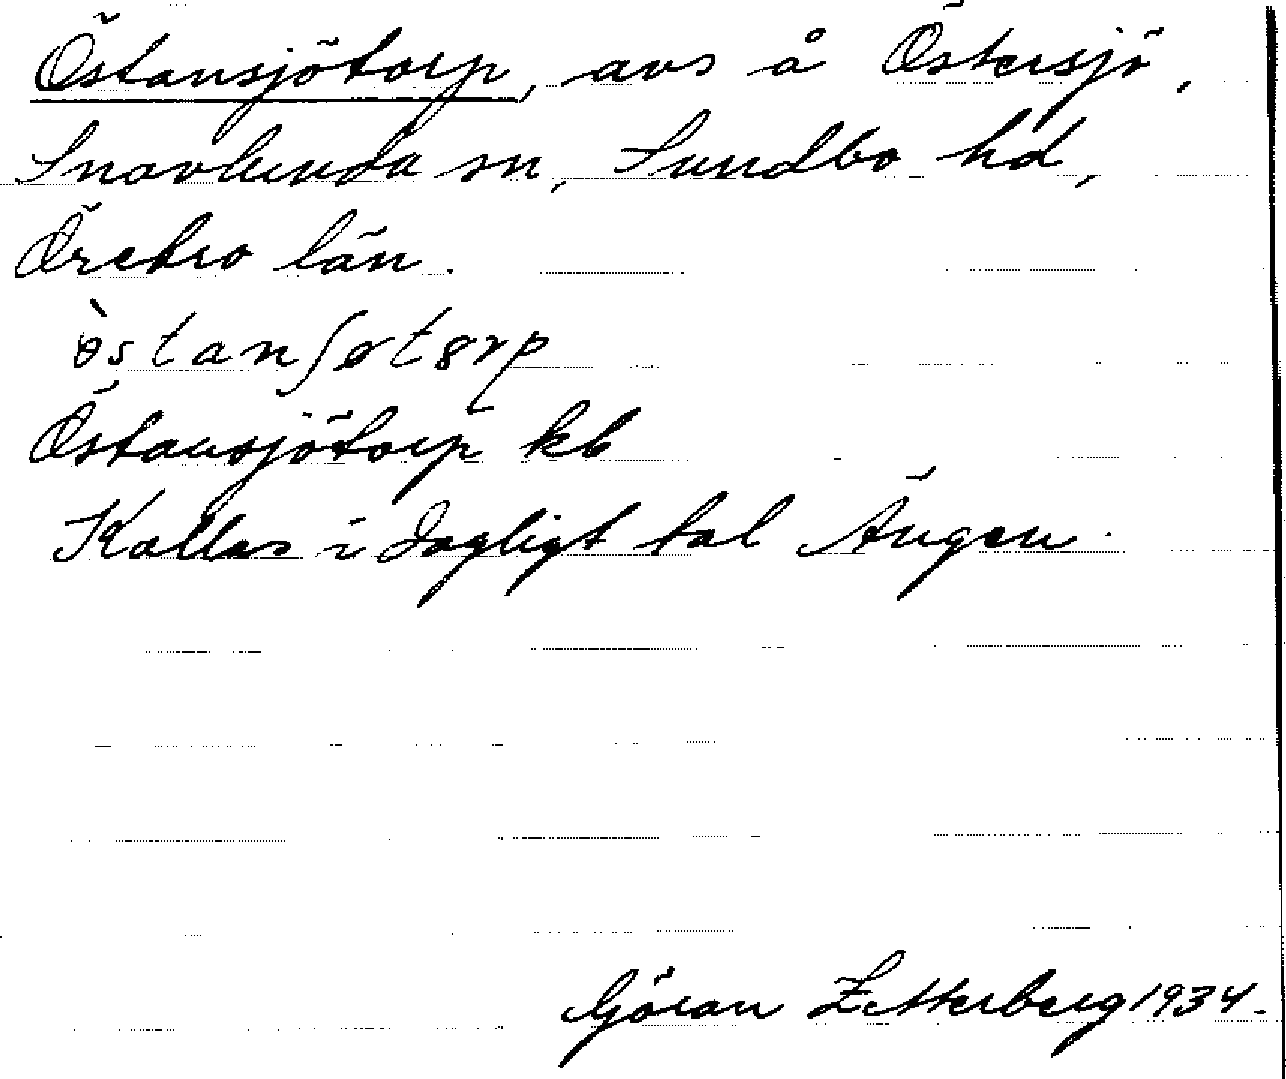 Östansjötorp, avs å Östersjö,
Snavlunda sn, Sundbo hd,
Örebro län.
östanʃøtørp
Östansjötorp kb
Kallas i dagligt tal Ängen.
Göran Zetterberg 1934.